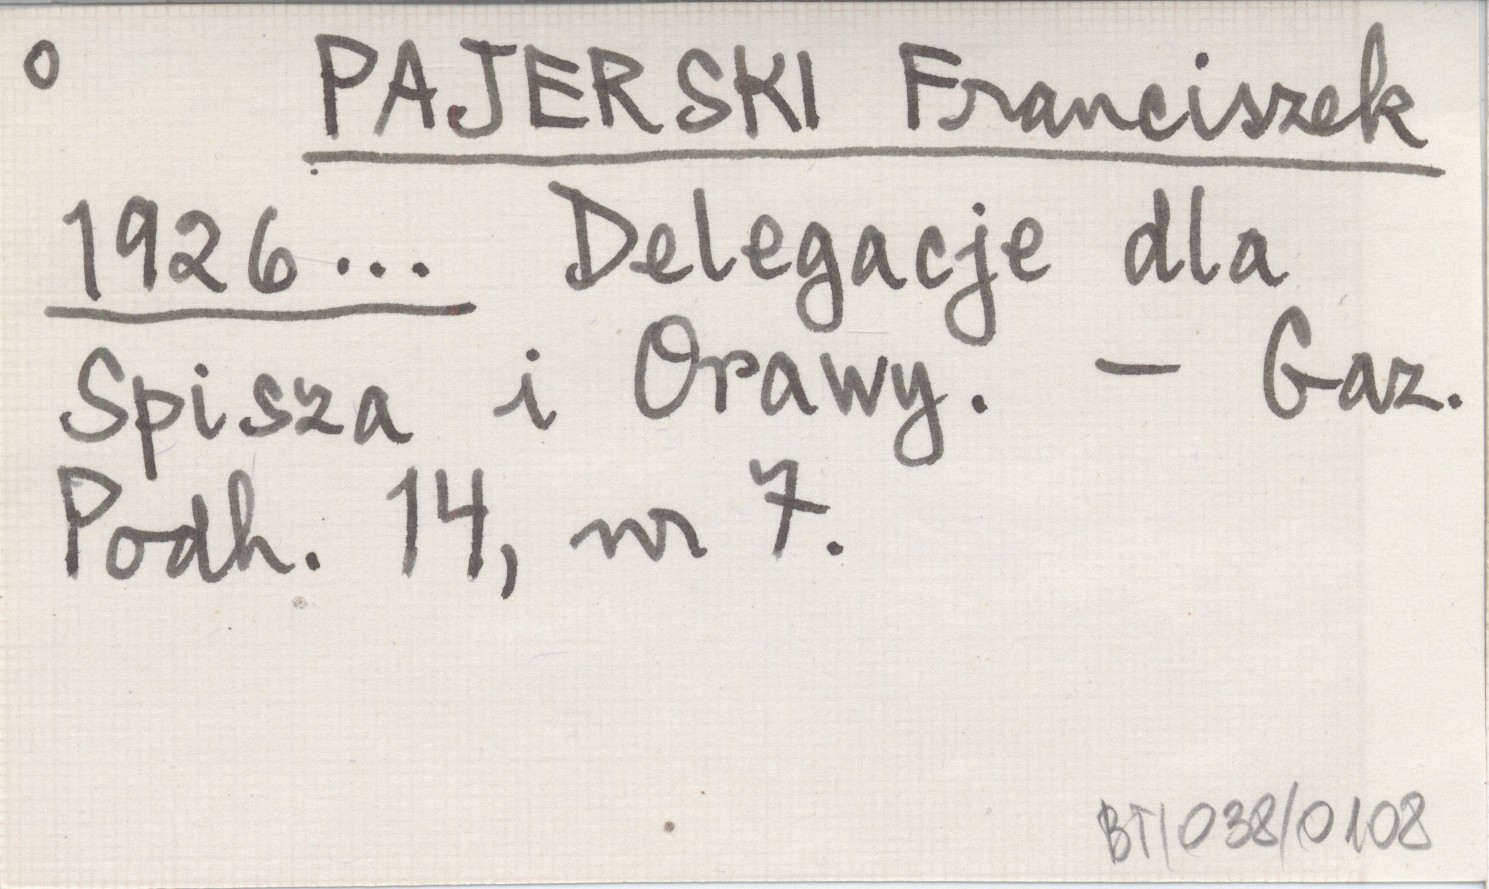 o PAJERSKI Franciszek
1926... Delegacje dla
Spisza i Orawy. - Gaz.
Podh. 14, nr 7.
BT/038/0108